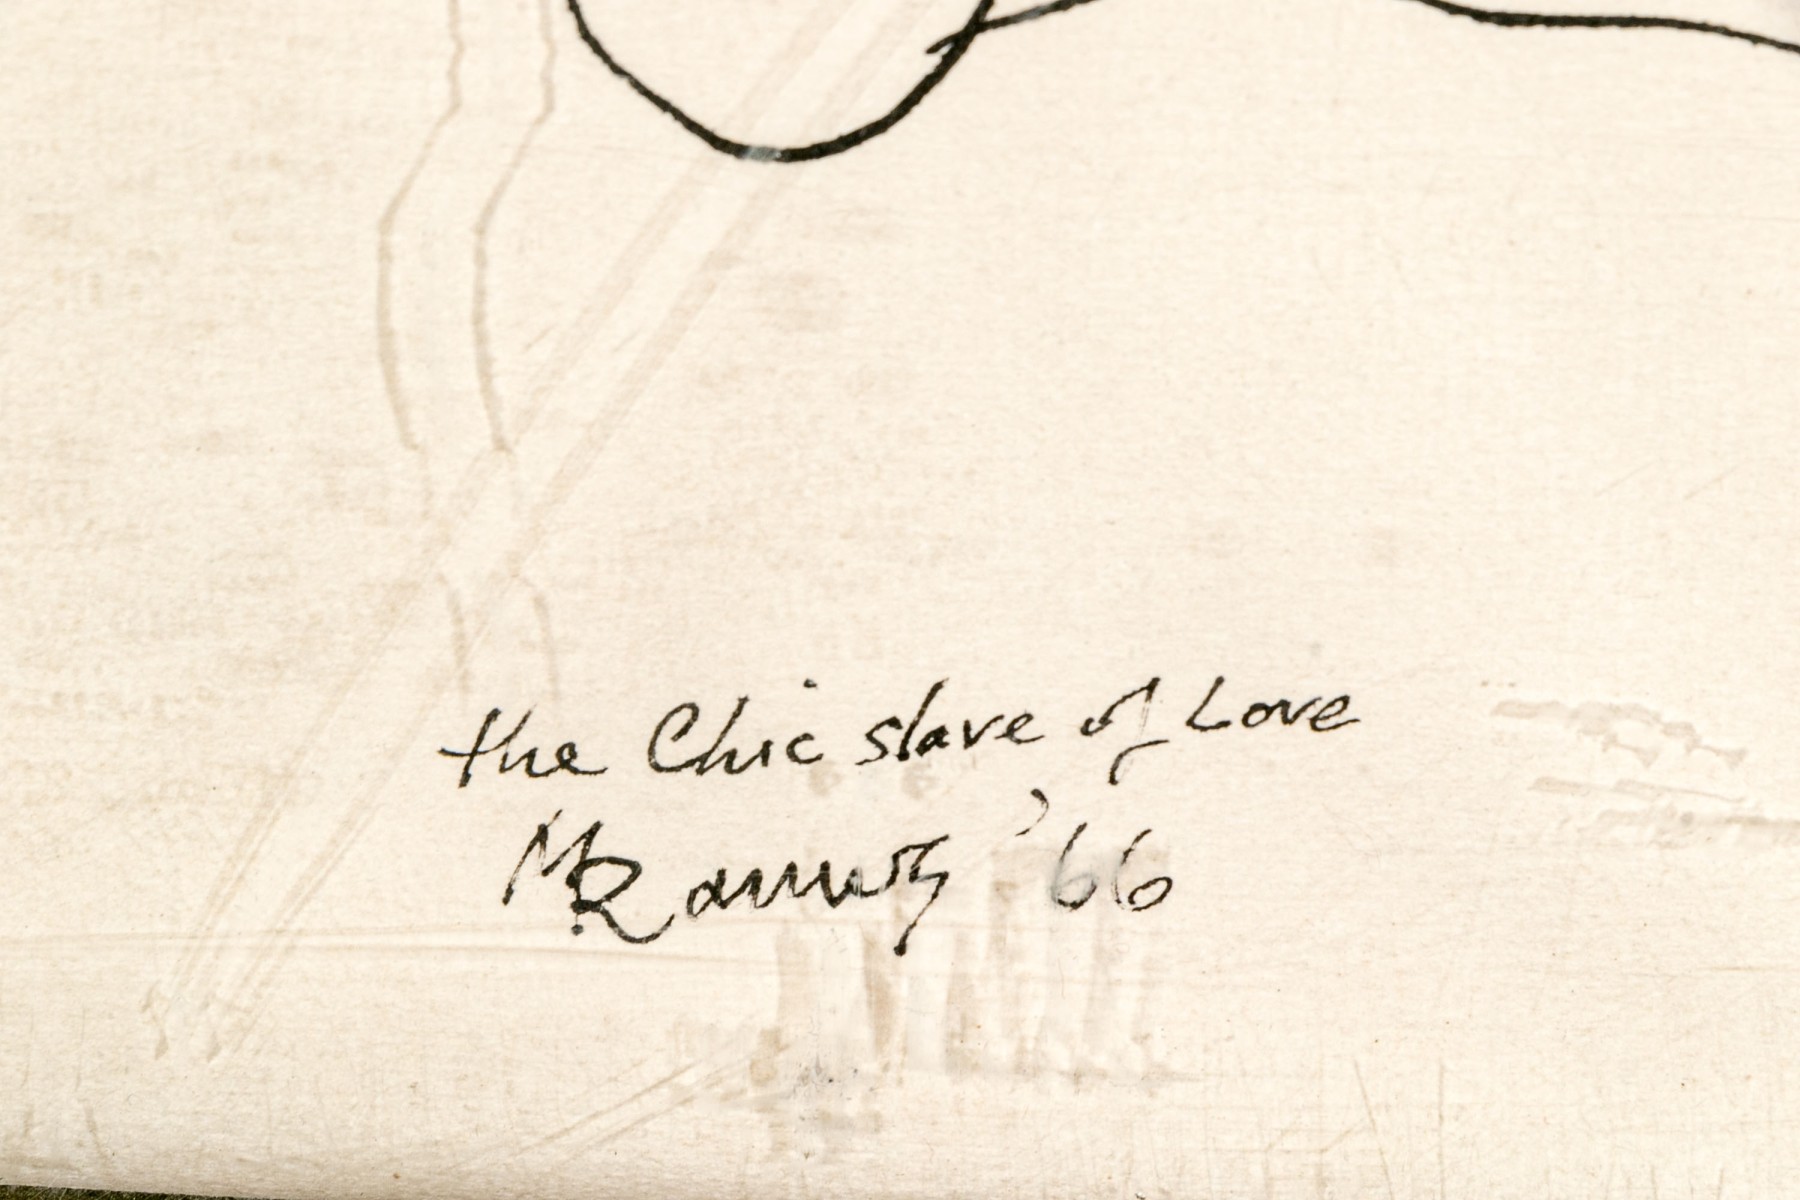 the Chic slave of Love
M Ramos '66